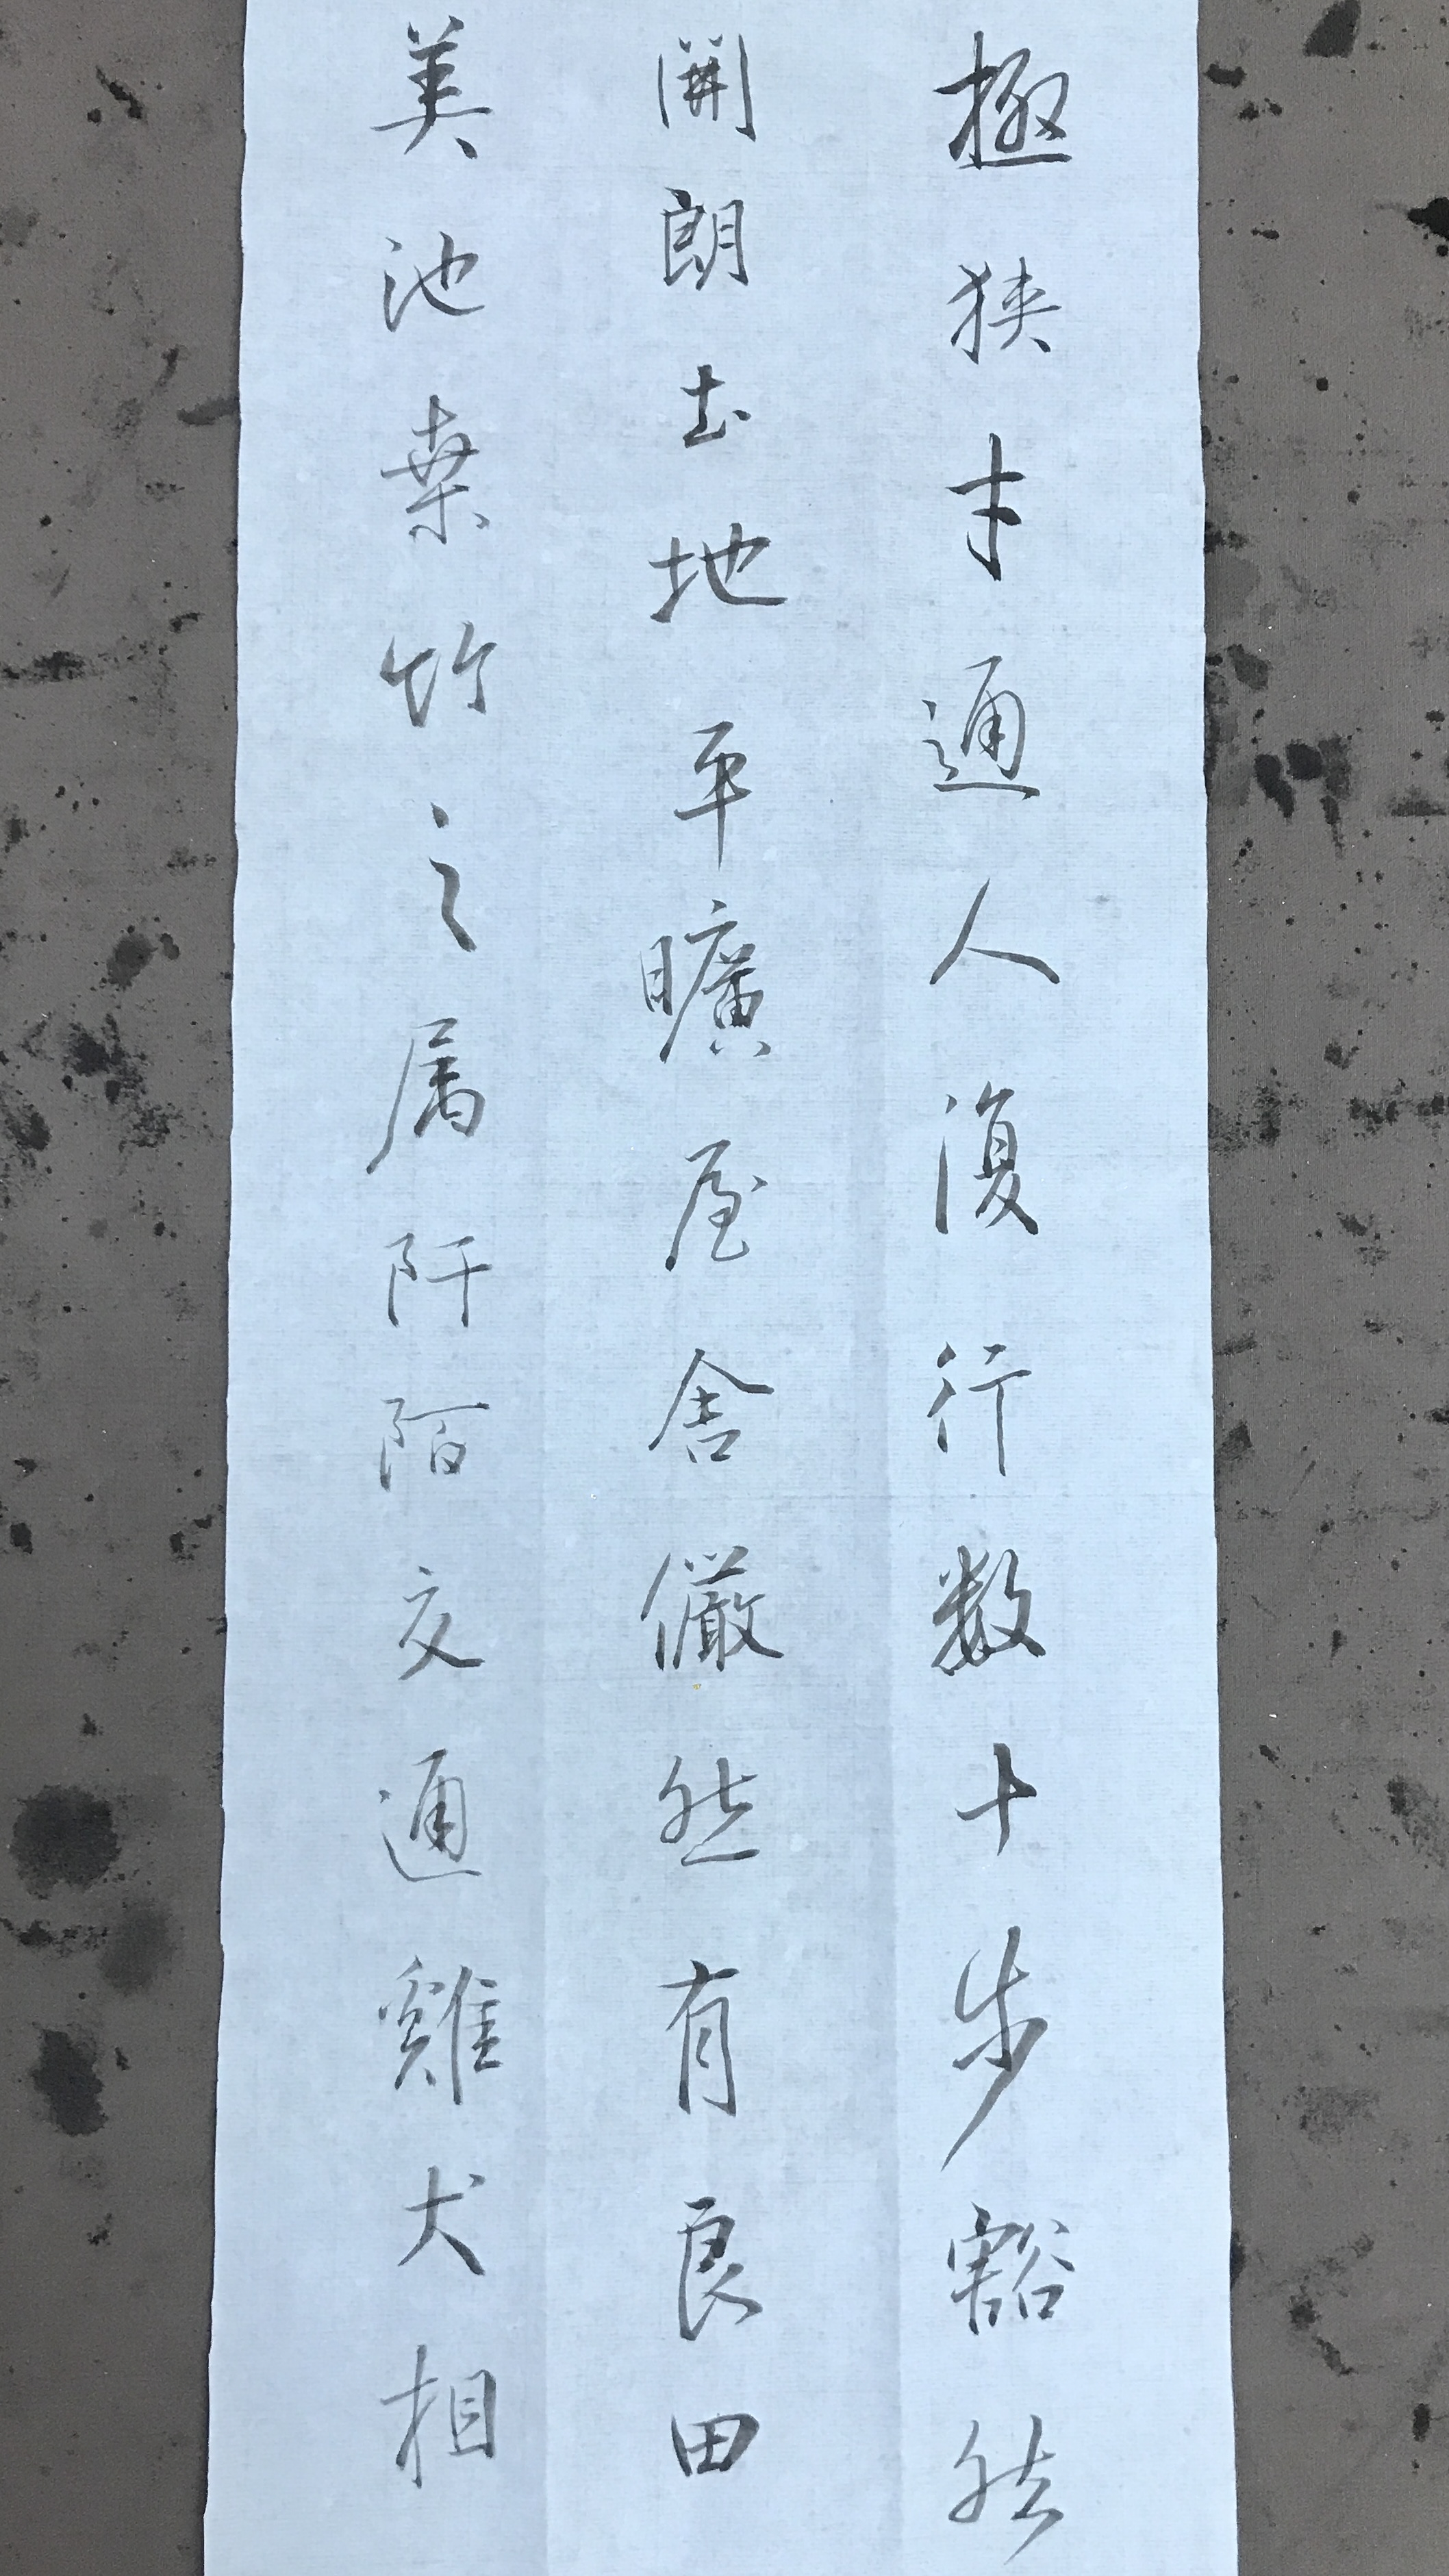 極狹才通人復行數十步豁然
開朗土地平曠屋舍儼然有良田
美池桑竹之属阡陌交通雞犬相